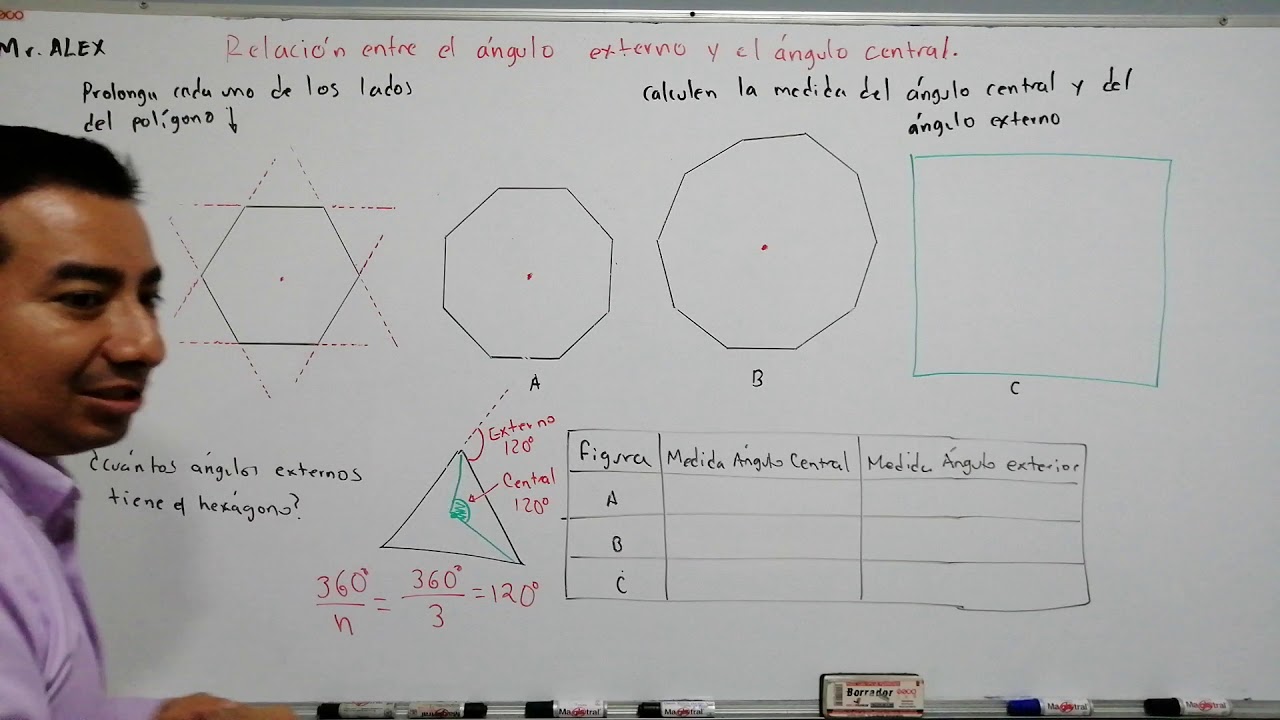 Mr. ALEX
Relación entre el ángulo externo y el ángulo central.
Prolonga cada uno de los lados
del polígono ↓
Calculen la medida del ángulo central y del
ángulo externo
A
B
C
¿Cuántos ángulos externos
tiene el hexágono?
Externo
120°
Central
120°
360°/n = 360°/3 = 120°
Figura Medida Ángulo Central Medida Ángulo exterior
A
B
C
Borrador
Magistral
Magistral
Magistral
Magistral